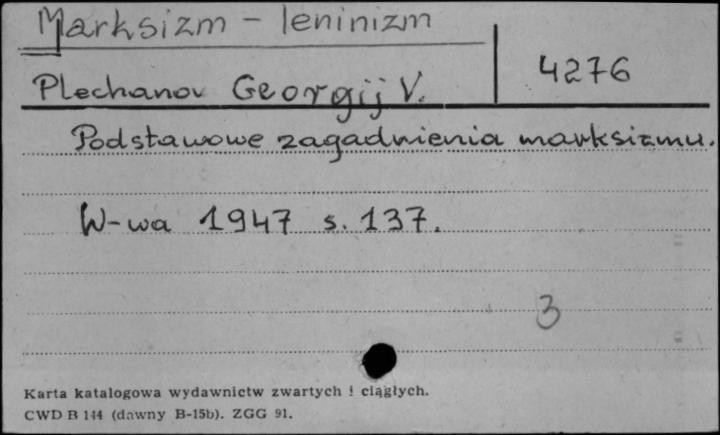 Marksizm - leninizm
Plechanov Georgij V.
4276
Podstawowe zagadnienia marksizmu.
W-wa 1947 s. 137.
3
Karta katalogowa wydawnictw zwartych i ciągłych.
CWD B 144 (dawny B-15b). ZGG 91.